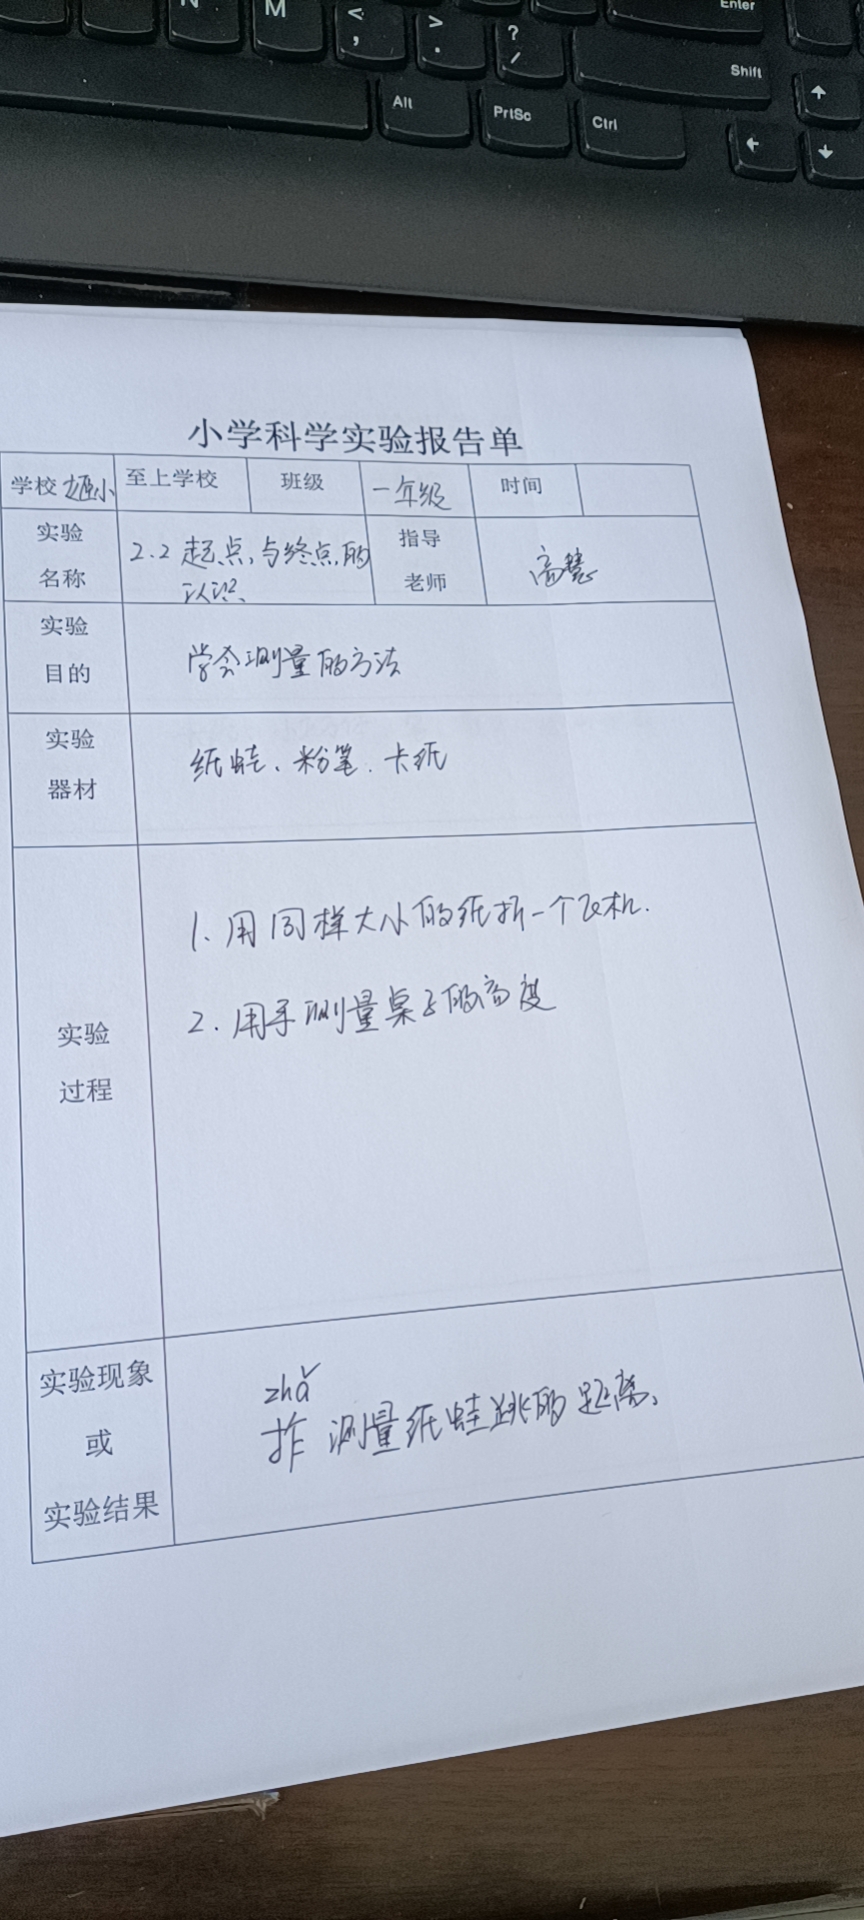 N
M
<
,
>
.
?
/
Enter
Shift
Alt
PrtSc
Ctrl
↑
←
↓
小学科学实验报告单
学校 至上学校 班级 一年级 时间
实验名称 2.2 起点与终点的认识 指导老师 高慧
实验目的 学会测量的方法
实验器材 纸蛙、粉笔、卡纸
实验过程
1. 用同样大小的纸折一个飞机.
2. 用手测量桌子的高度
实验现象或实验结果
zhǎ
拃 测量纸蛙跳的距离、